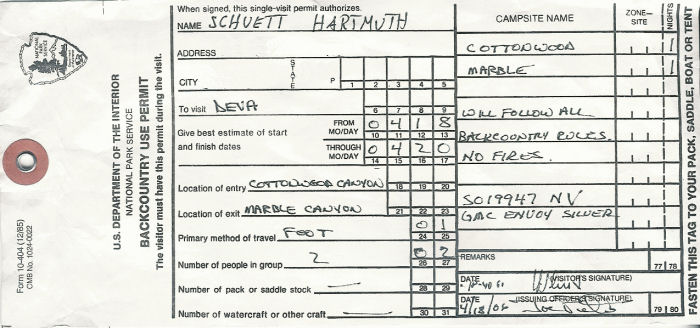 When signed, this single-visit permit authorizes.
NAME SCHUETT HARTMUTH
ADDRESS
CITY STATE P 1 2 3 4 5
To visit DEVA 6 7 8 9
Give best estimate of start FROM MO/DAY 0 4 1 8
10 11 12 13
and finish dates THROUGH MO/DAY 0 4 2 0
14 15 16 17
Location of entry COTTONWOOD CANYON 18 19 20
Location of exit MARBLE CANYON 21 22 23
Primary method of travel FOOT 0 1
24 25
Number of people in group 2 0 2
26 27
Number of pack or saddle stock — 28 29
Number of watercraft or other craft — 30 31
CAMPSITE NAME ZONE-SITE NIGHTS
COTTONWOOD 1
MARBLE 1
WILL FOLLOW ALL
BACKCOUNTRY RULES.
NO FIRES.
SO19947 NV
GMC ENVOY SILVER
REMARKS 77 78
DATE (VISITOR'S SIGNATURE)
DATE 4/18/05 (ISSUING OFFICER'S SIGNATURE)
79 80
U.S. DEPARTMENT OF THE INTERIOR
NATIONAL PARK SERVICE
BACKCOUNTRY USE PERMIT
The visitor must have this permit during the visit.
Form 10-404 (12/85)
OMB No. 1024-0022
NATIONAL PARK SERVICE
FASTEN THIS TAG TO YOUR PACK, SADDLE, BOAT OR TENT